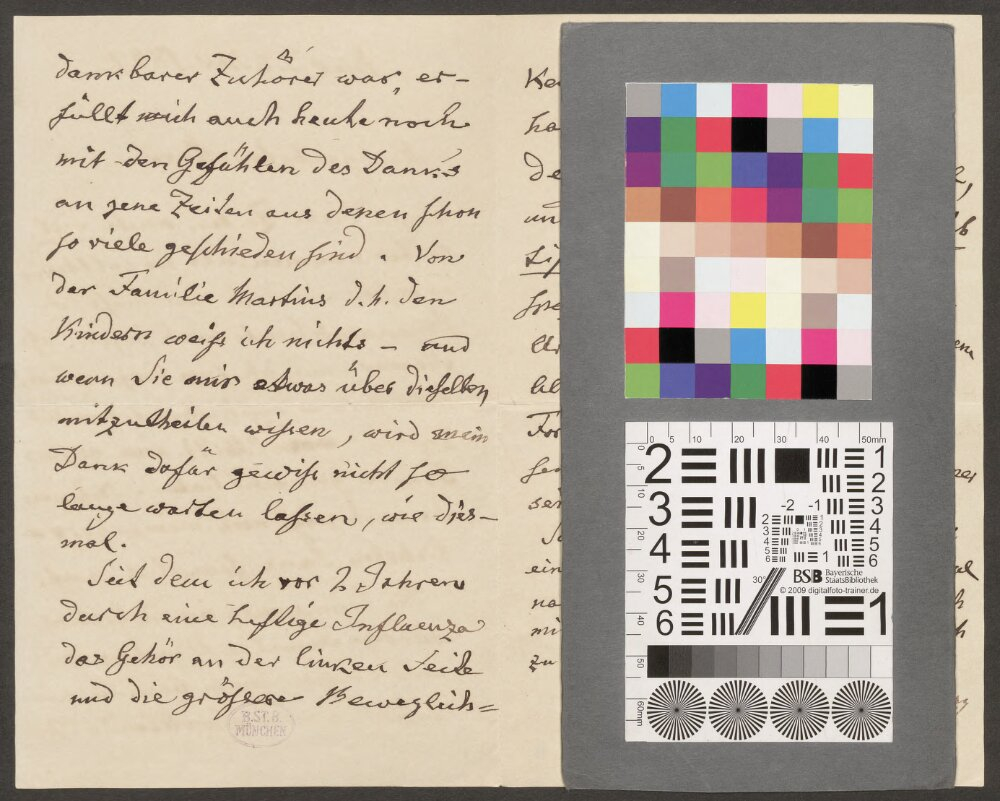 dankbarer Zuhörer war, er-
füllt mich auch heute noch
mit den Gefühlen des Dank's
an jene Zeiten aus denen schon
so viele geschieden sind. Von
der Familie Martius d. h. den
Kindern weiss ich nichts – und
wenn Sie mir etwas über dieselben
mitzutheilen wissen, wird mein
Dank dafür gewiss nicht so
lange warten lassen, wie dies-
mal.
Seit dem ich vor 2 Jahren
durch eine heftige Influenza
das Gehör an der linken Seite
und die grössere Beweglich=
B.ST.B.
MÜNCHEN
ha
de
un
ein
na
mi
zu
0 5 10 20 30 40 50mm
0 10 20 30 40 50 60mm
2 3 4 5 6
1 2 3 4 5 6
-2 -1
2 3 4 5 6
1
30°
BSB Bayerische
StaatsBibliothek
© 2009 digitalfoto-trainer.de
1